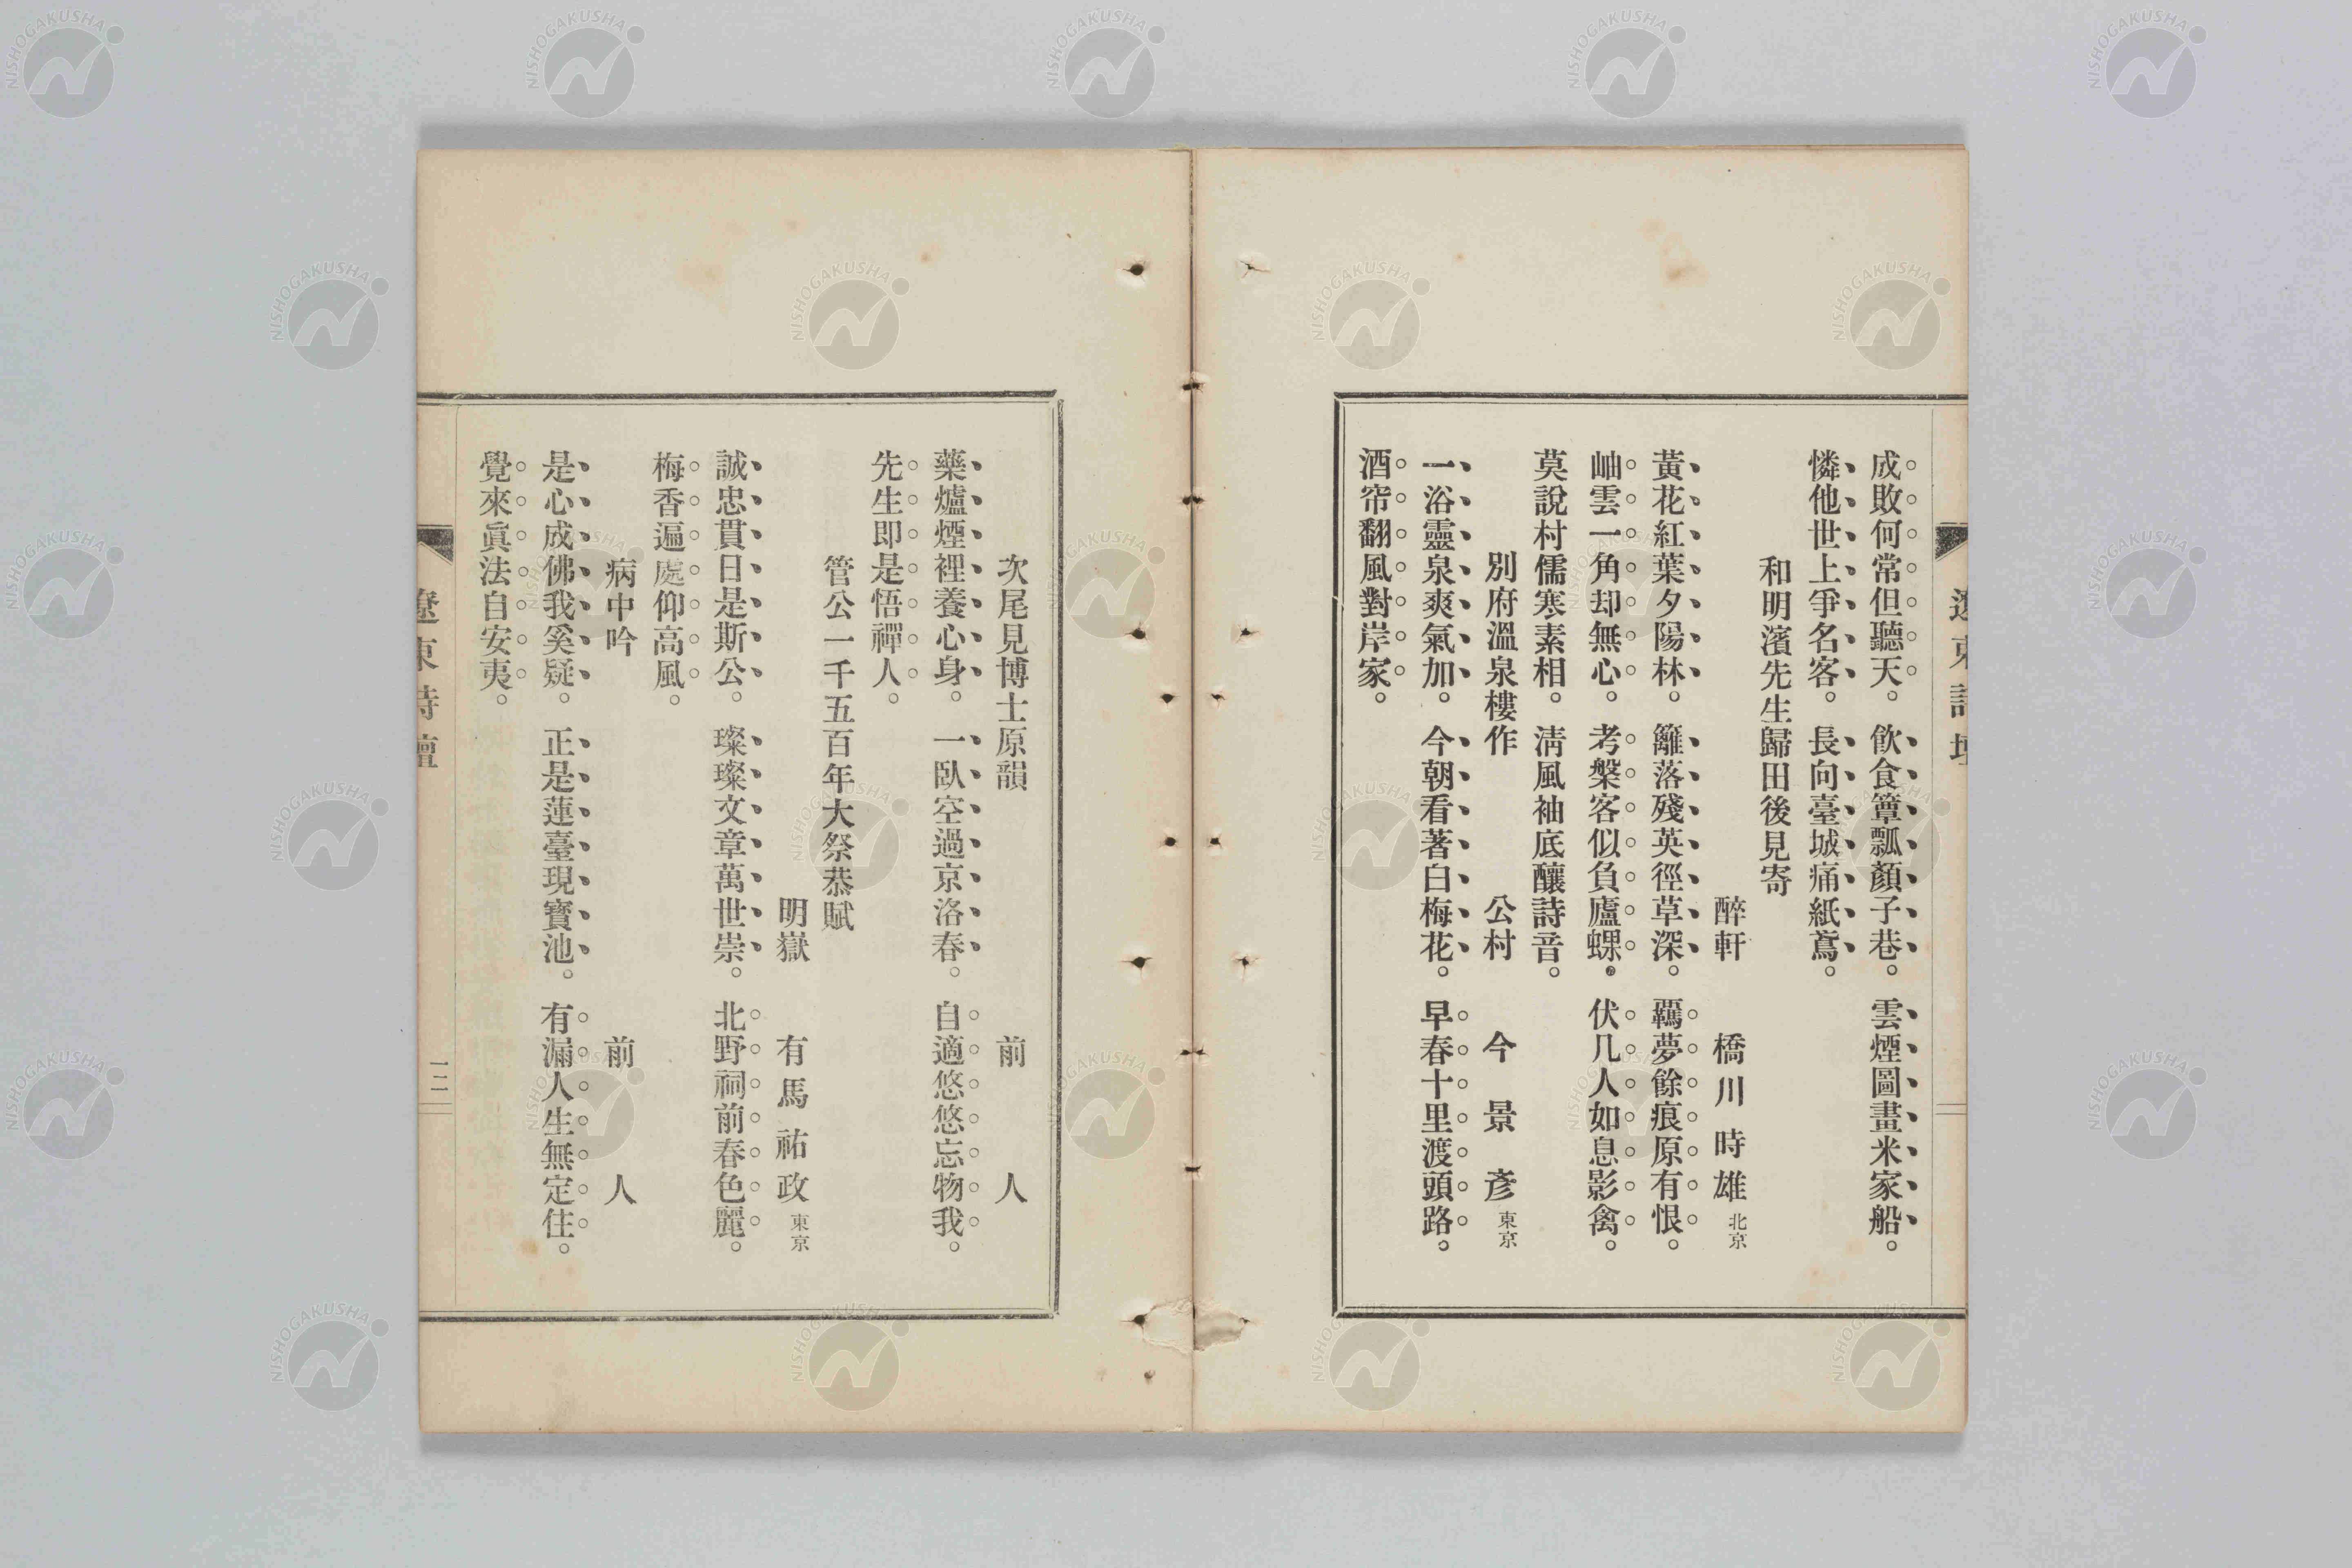 成敗何常但聽天。飮食簞瓢顏子巷。雲煙圖畫米家船。
憐他世上爭名客。長向臺城痛紙鳶。
和明濱先生歸田後見寄
醉軒 橋川時雄 北京
黃花紅葉夕陽林。籬落殘英徑草深。羈夢餘痕原有恨。
岫雲一角却無心。考槃客似負廬螺。伏几人如息影禽。
莫說村儒寒素相。淸風袖底釀詩音。
別府溫泉樓作
公村 今景彥 東京
一浴靈泉爽氣加。今朝看著白梅花。早春十里渡頭路。
酒帘翻風對岸家。
遼東詩壇
次尾見博士原韻 前人
藥爐煙裡養心身。一臥空過京洛春。自適悠悠忘物我。
先生即是悟禪人。
管公一千五百年大祭恭賦
明嶽 有馬祐政 東京
誠忠貫日是斯公。璨璨文章萬世崇。北野祠前春色麗。
梅香遍處仰高風。
病中吟 前人
是心成佛我奚疑。正是蓮臺現寶池。有漏人生無定住。
覺來眞法自安夷。
遼東詩壇
NISHOGAKUSHA